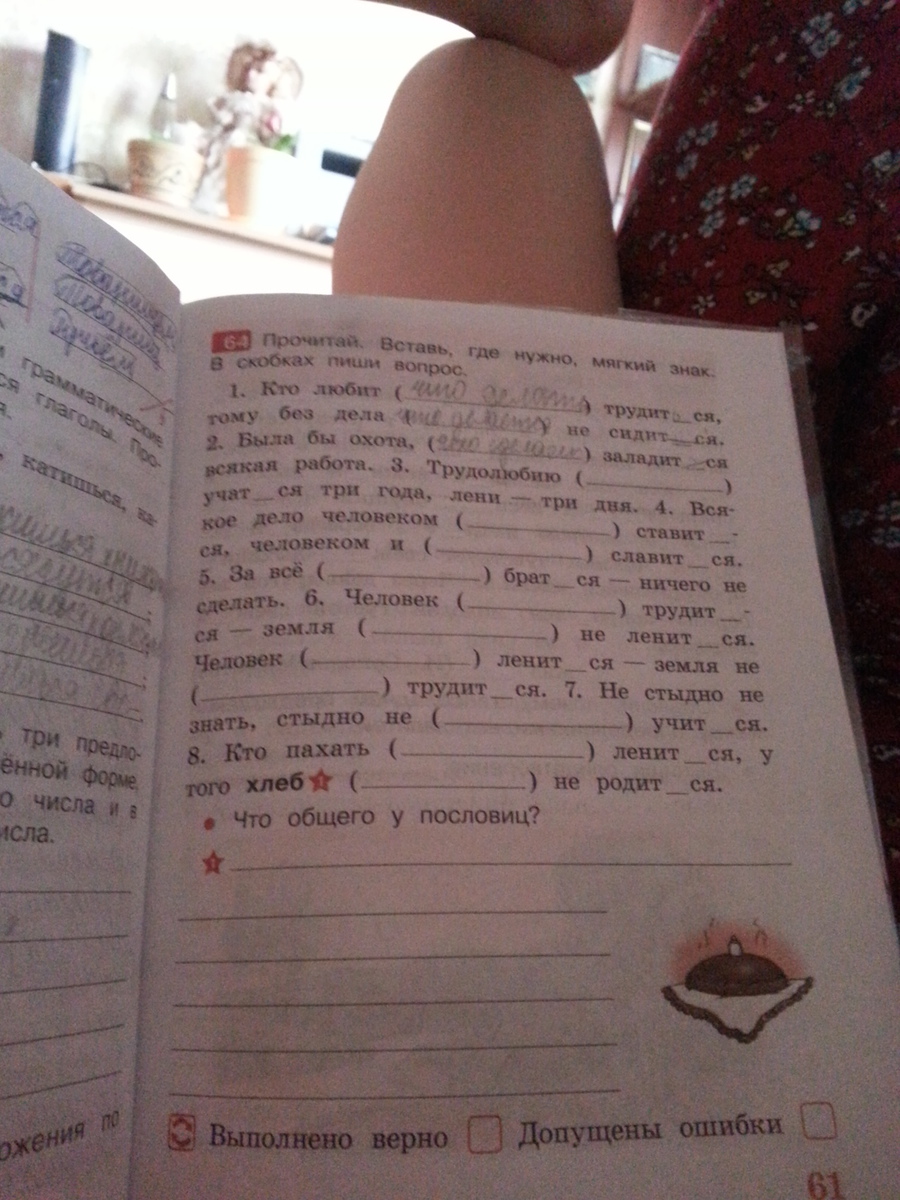 ся
ся
грамматические
ся глаголы. Про-
я.
, катишься, ка-
64 Прочитай. Вставь, где нужно, мягкий знак.
В скобках пиши вопрос.
1. Кто любит (что делать) трудит__ся,
тому без дела (что делается) не сидит__ся.
2. Была бы охота, () заладит__ся
всякая работа. 3. Трудолюбию (__________)
учат__ся три года, лени — три дня. 4. Вся-
кое дело человеком (__________) ставит__-
ся, человеком и (__________) славит__ся.
5. За всё (__________) брат__ся — ничего не
сделать. 6. Человек (__________) трудит__-
ся — земля (__________) не ленит__ся.
Человек (__________) ленит__ся — земля не
(__________) трудит__ся. 7. Не стыдно не
знать, стыдно не (__________) учит__ся.
8. Кто пахать (__________) ленит__ся, у
того хлеб 1 (__________) не родит__ся.
• Что общего у пословиц?
1
три предло-
ённой форме,
о числа и в
исла.
ожения по
Выполнено верно Допущены ошибки
61